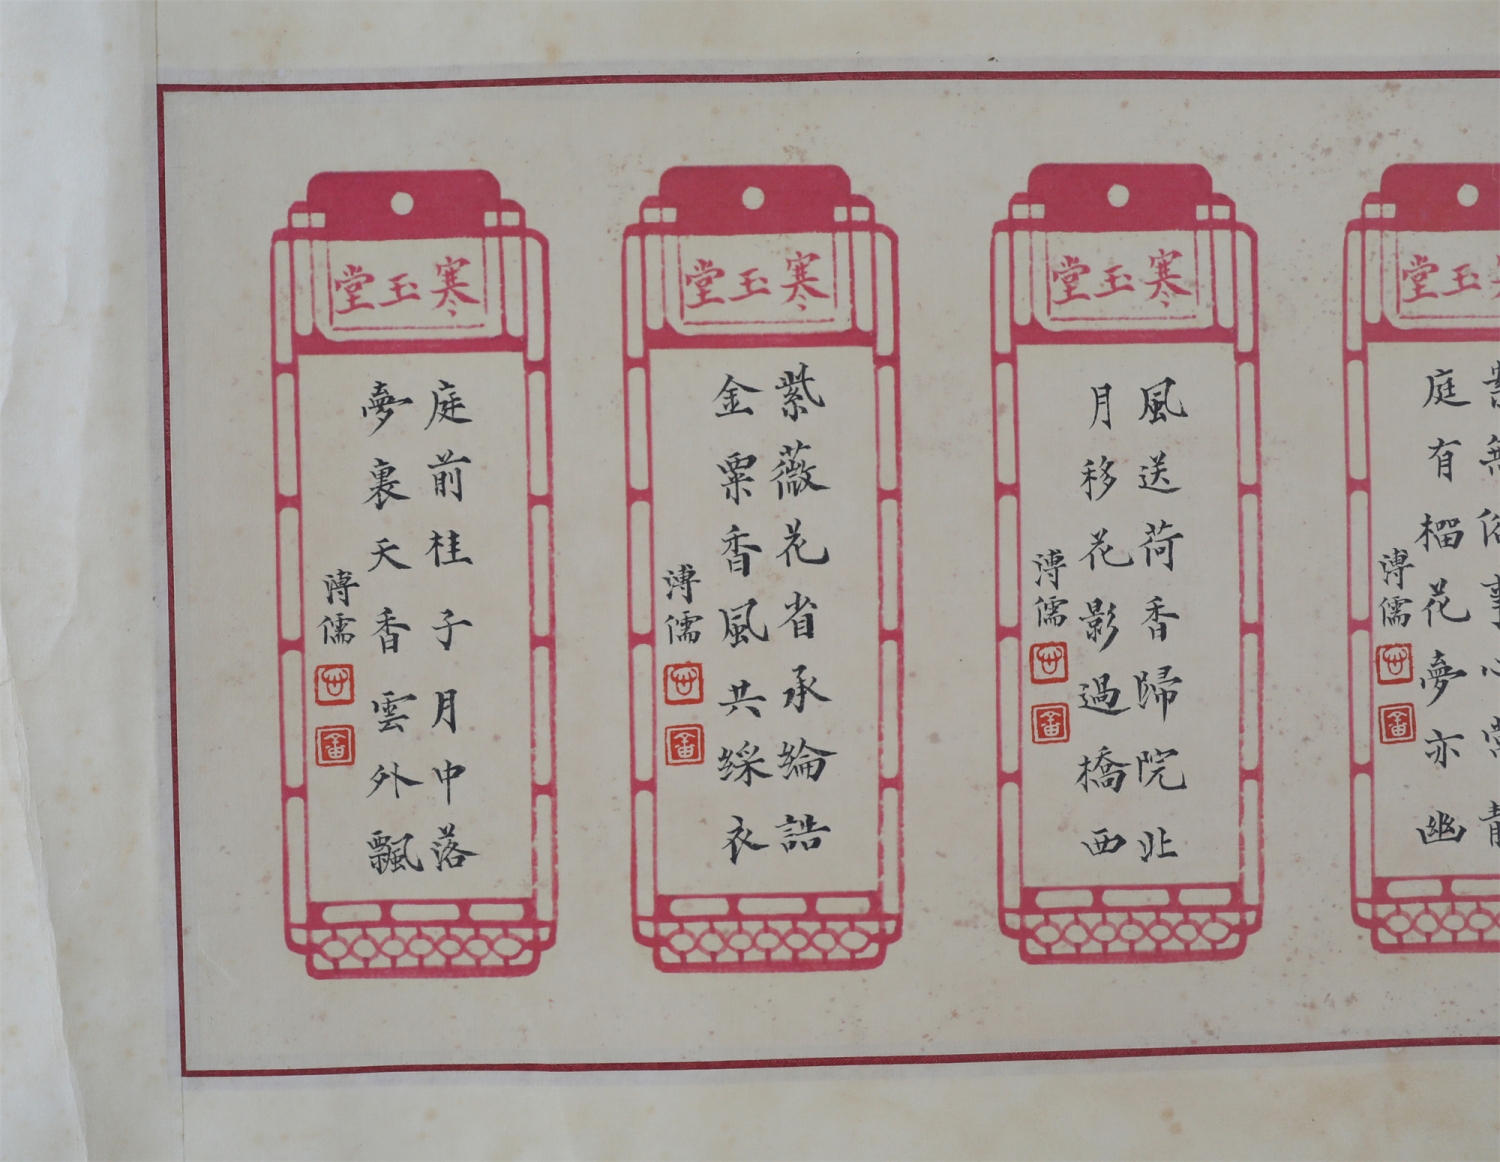 寒玉堂
庭有榴花夢亦幽
溥儒
寒玉堂
風送荷香歸院北
月移花影過橋西
溥儒
寒玉堂
紫薇花省承綸誥
金粟香風共綵衣
溥儒
寒玉堂
庭前桂子月中落
夢裏天香雲外飄
溥儒